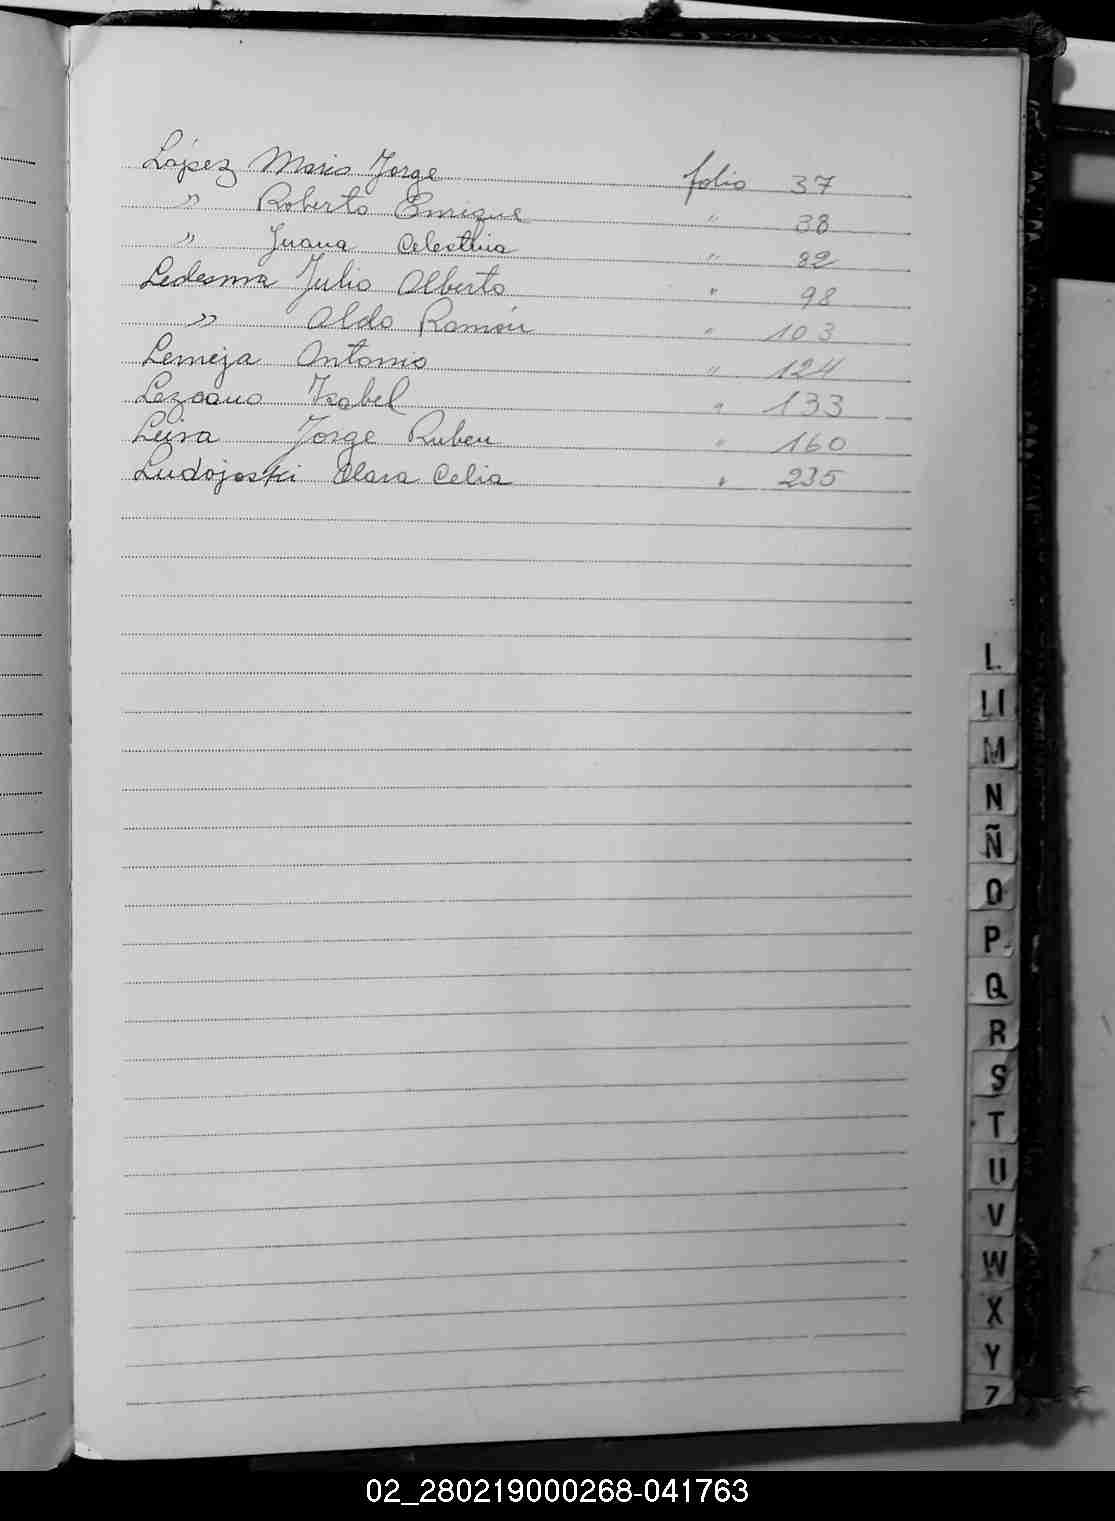 López Mario Jorge folio 37
" Roberto Enrique " 38
" Juana Celestina " 82
Ledesma Julio Alberto " 98
" Aldo Ramón " 103
Antonio " 124
Lezcano Isabel " 133
Leiva Jorge Ruben " 160
Ludojoski Clara Celia " 235
L
Ll
M
N
Ñ
O
P
Q
R
S
T
U
V
W
X
Y
Z
02_280219000268-041763